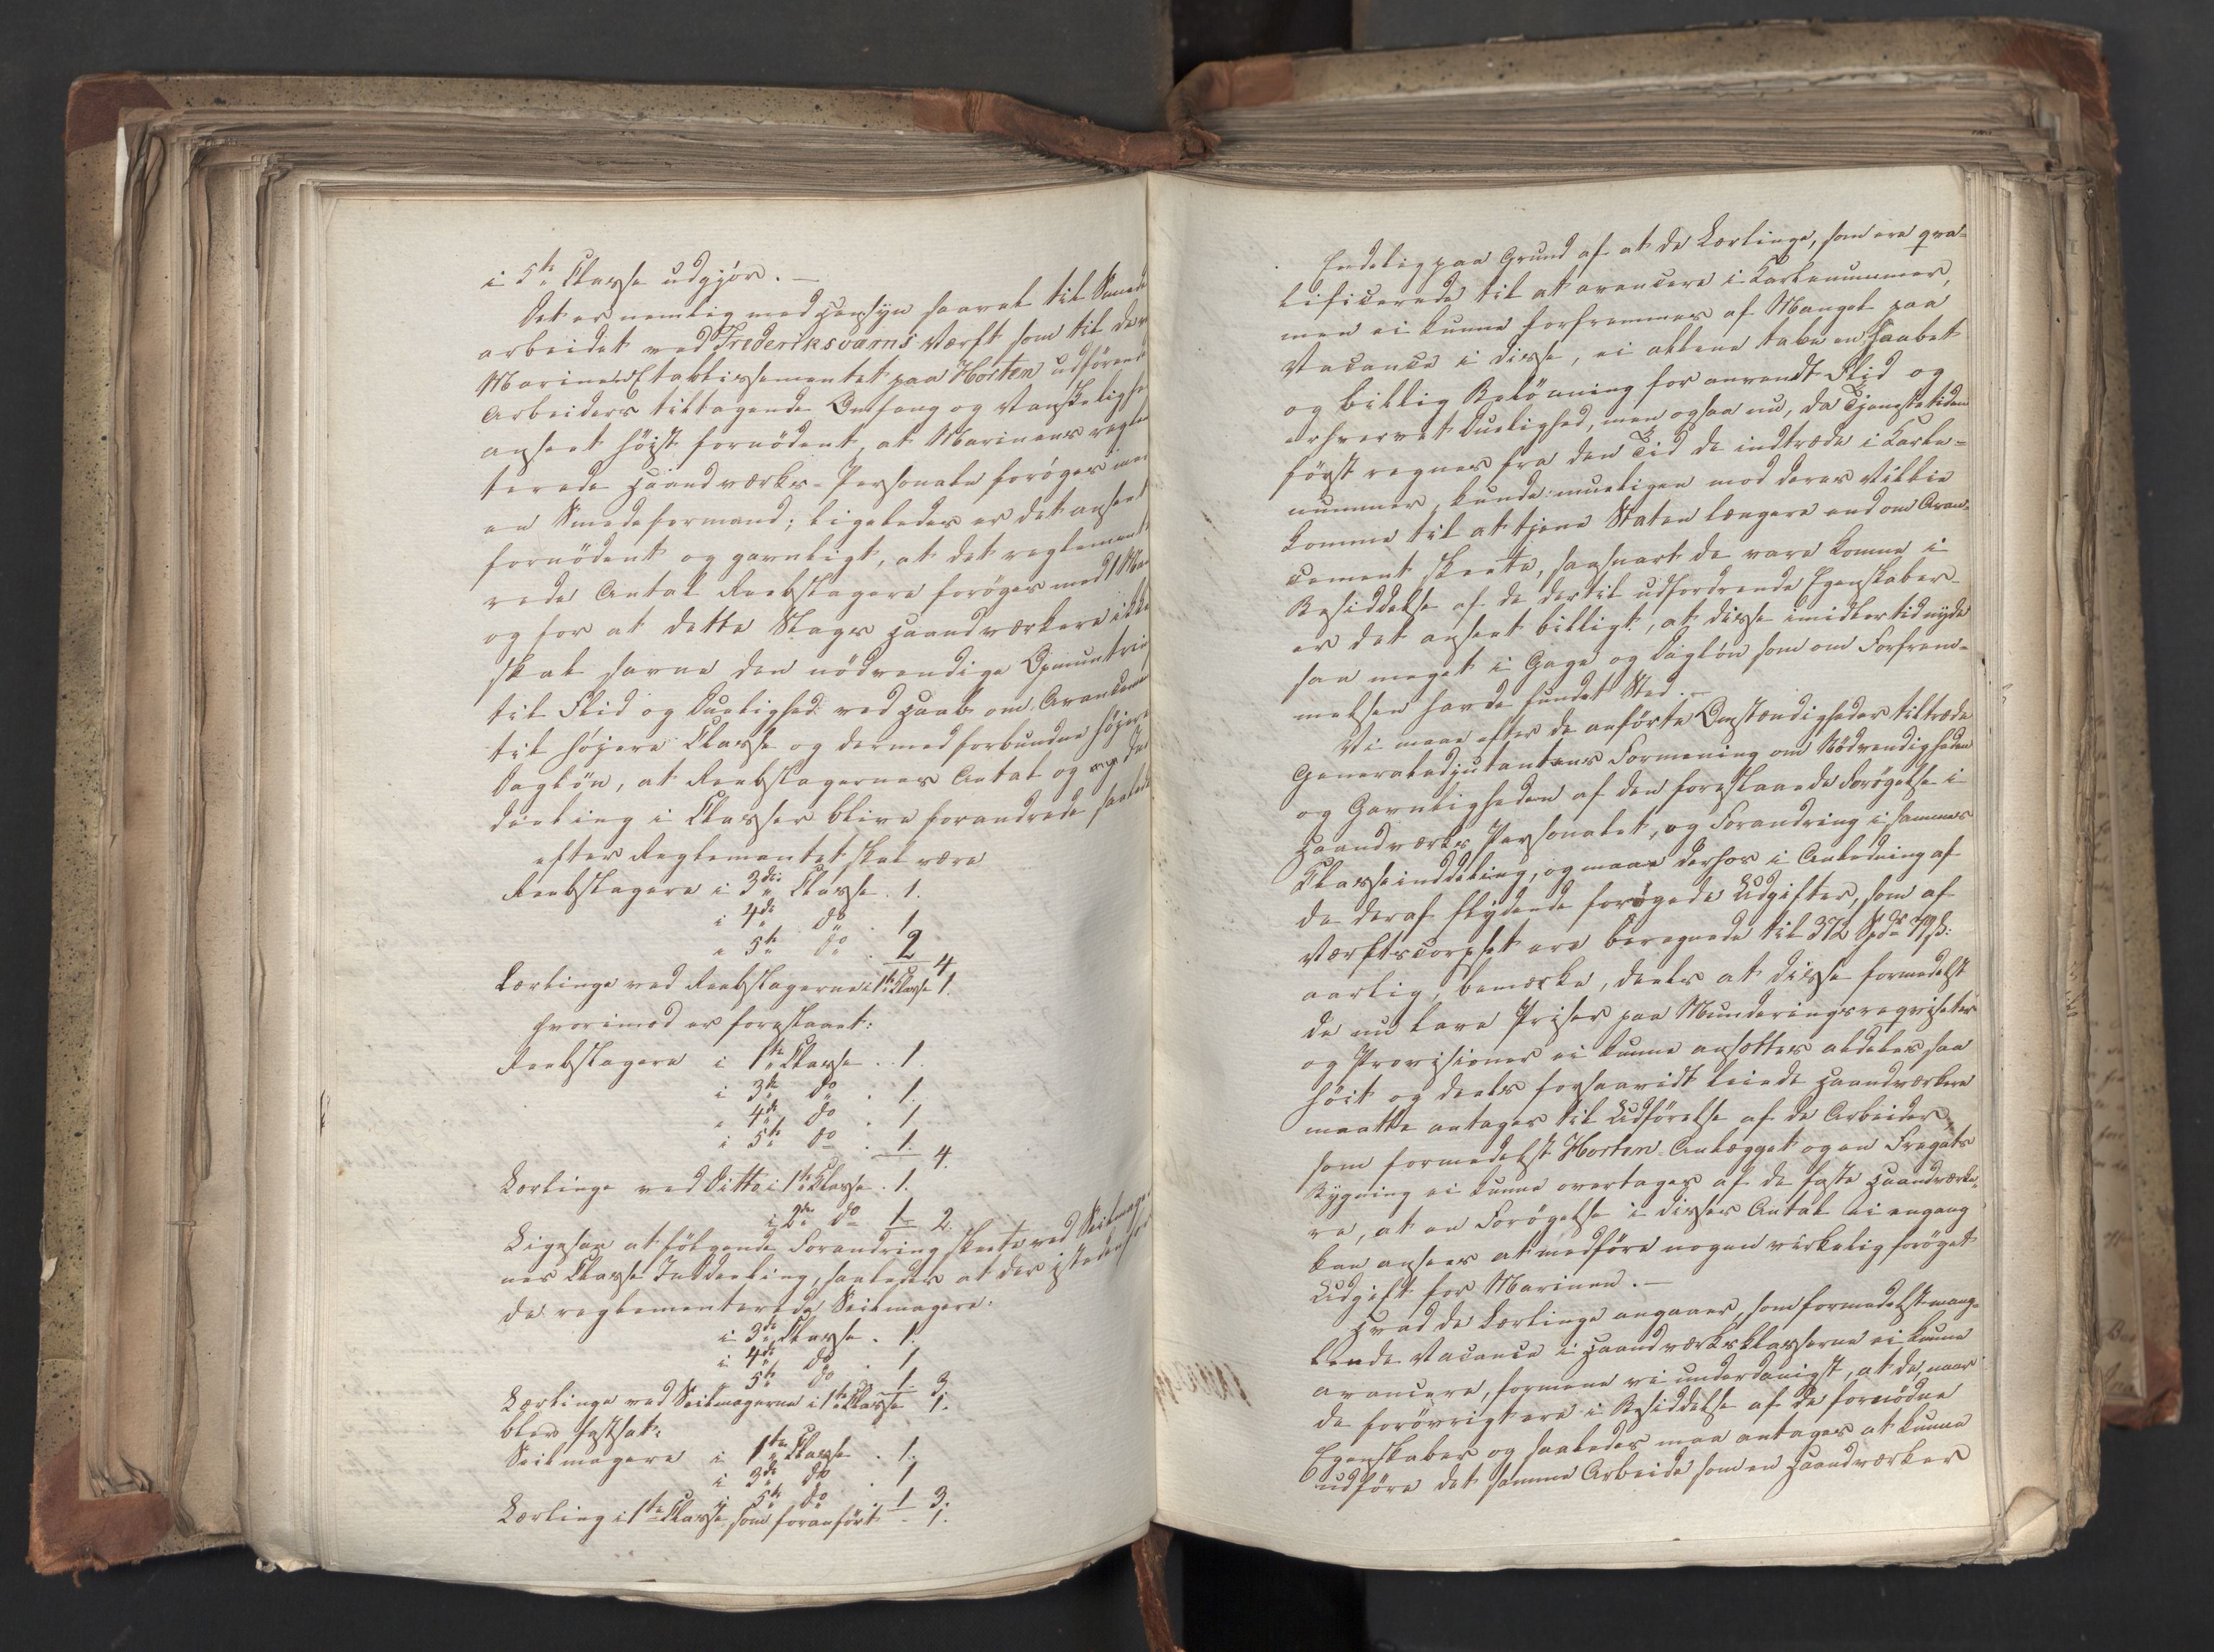 i 5te Classe udgjør. —
Det er nemlig med Hensyn saavel til Smede
arbeidet ved Frederiksværns Værft som til de ved
Marine-Etablissementet paa Horten udførende
Arbeiders tiltagende Omfang og Vanskelighed
anseet høist fornødent, at Marinens reglemen
terede Haandværks-Personale forøges med
en Smedeformand; ligeledes er det anseet
fornødent og gavnligt, at det reglemente
rede Antal Reebslagere forøges med 1 Mand
og for at dette Slags Haandværkere ikke
skal savne den nødvendige Opmuntring
til Flid og Duelighed ved Haab om Avancement
til høiere Classe og dermed forbundne høiere
Dagløn, at Reebslagernes Antal og
deeling i Classer blive forandrede saaledes
efter Reglementet skal være
Reebslagere i 3die Classe . 1.
i 4de do . 1
" 5te do . 2 4
Lærlinge ved Reebslagerne i 1te Classe 1.
hvorimod er foreslaaet:
Reebslagere i 1te Classe . . 1.
i 3de do . 1.
" 4de do . 1
i 5te do . 1. 4.
Lærlinge ved Ditto i 1te Classe . 1.
i 2den do 1 2.
Ligesaa at følgende Forandring skeete ved Seilmager
nes Classe Inddeeling, saaledes at der istedenfor
de reglementerede Seilmagere:
i 3de Classe . 1.
i 4de do . 1
" 5te do 1 3.
Lærlinge ved Seilmagerne i 1te Classe 1.
blev fastsat:
Seilmagere i 1te Classe . 1.
i 3de do . 1
i 5te do . 1 3.
Lærling i 1te Classe, som foranført - 1.
Endelig paa Grund af at de Lærlinge, som ere qva-
lificerede til at avancere i Karlenummer,
men ei kunne forfremmes af Mangel paa
Vacance i disse, ei allene tabe en Haabet
og billig Belønning for anvendt Flid og
erhvervet Duelighed, men ogsaa nu, da Tjenestetiden
først regnes fra den Tid de indtræde i Karle-
nummer, kunde mueligen mod deres Villie
komme til at tjene Staten længere end om Avan-
cement skeete, saasnart de vare komne i
Besiddelse af de dertil udfordrende Egenskaber
er det anseet billigt, at disse imidlertid nyde
saa meget i Gage og Dagløn som om Forfrem-
melsen havde fundet Sted. —
Vi maae efter de anførte Omstændigheder tiltræde
Generaladjutantens Formening om Nødvendigheden
og Gavnligheden af den foreslaaede Forøgelse i
Haandværks Personalet, og Forandring i sammes
Klasseinddeling, og maae derhos i Anledning af
de deraf flydende forøgede Udgifter, som af
Værftscorpset ere beregnede til 372 Spdr 79 ß:
aarlig, bemærke, deels at disse formedelst
de nu lave Priser paa Munderingsreqvisiter
og Provisioner ei kunne ansættes aldeles saa
høit og deels forsaavidt leiede Haandværkere
maatte antages til Udførelse af de Arbeider,
som formedelst Horten-Anlægget og en Fregats
Bygning ei kunne overtages af de faste Haandværke-
re, at en Forøgelse i disses Antal ei engang
kan ansees at medføre nogen virkelig forøget
Udgift for Marinen. —
Hvad de Lærlinge angaaer, som formedelst mang-
lende Vacance i Haandværksklasserne ei kunne
avancere, formene vi underdanigst, at de, naar
de forøvrigt ere i Besiddelse af de fornødne
Egenskaber og saaledes maa antages at kunne
udføre det samme Arbeide som en Haandværker